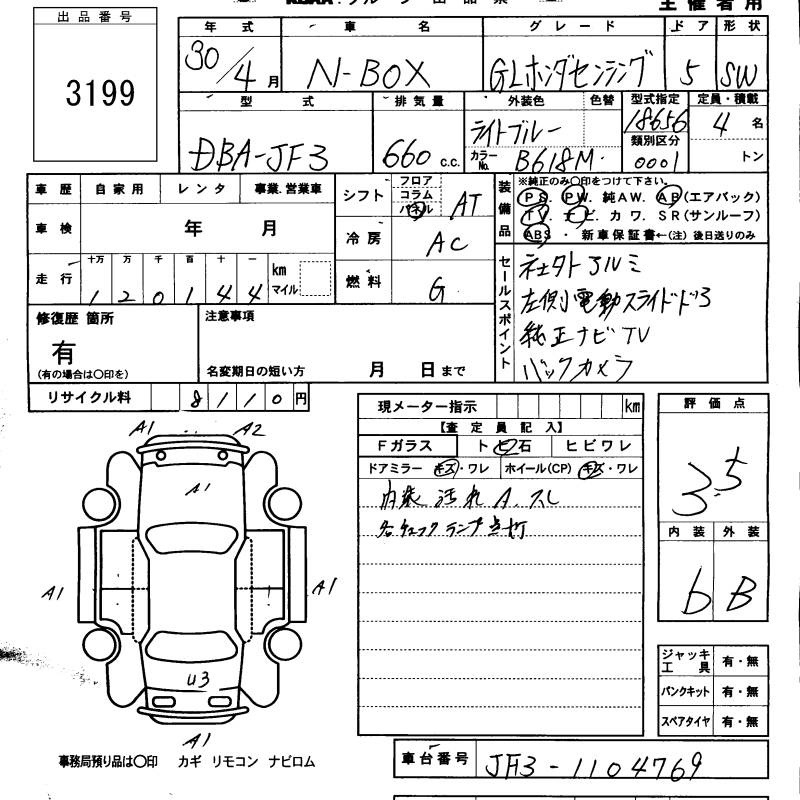 出品番号
3199
主催者用
年式 車名 グレード ドア 形状
30/4月 N-BOX GLホンダセンシング 5 SW
型式 排気量 外装色 色替 型式指定 定員・積載
DBA-JF3 660 c.c. ライトブルー 18656 4名
カラーNo. B618M 類別区分 0001 トン
車歴 自家用 レンタ 事業.営業車
車検 年 月
走行 十万 万 千 百 十 一 km マイル
1 2 0 1 4 4
シフト フロア コラム パネル AT
冷房 AC
燃料 G
装備品
※純正のみ○印をつけて下さい。
PS. PW. 純AW. AB(エアバック)
TV. ナビ. カワ. SR(サンルーフ)
ABS ・ 新車保証書←(注)後日送りのみ
セールスポイント
社外アルミ
左側電動スライドドア
純正ナビTV
バックカメラ
修復歴 箇所
有
(有の場合は○印を)
注意事項
名変期日の短い方 月 日まで
リサイクル料 8110円
現メーター指示 km
【査定員記入】
Fガラス ト ビ 石 ヒビワレ
ドアミラー キズ・ワレ ホイール(CP) キズ・ワレ
内装 汚れ A. スレ
各チェックランプ点灯
評価点
3.5
内装 外装
b B
A1 A2
A1
A1 A1
U3
A1
ジャッキ工具 有・無
パンクキット 有・無
スペアタイヤ 有・無
事務局預り品は○印 カギ リモコン ナビロム
車台番号 JF3-1104769